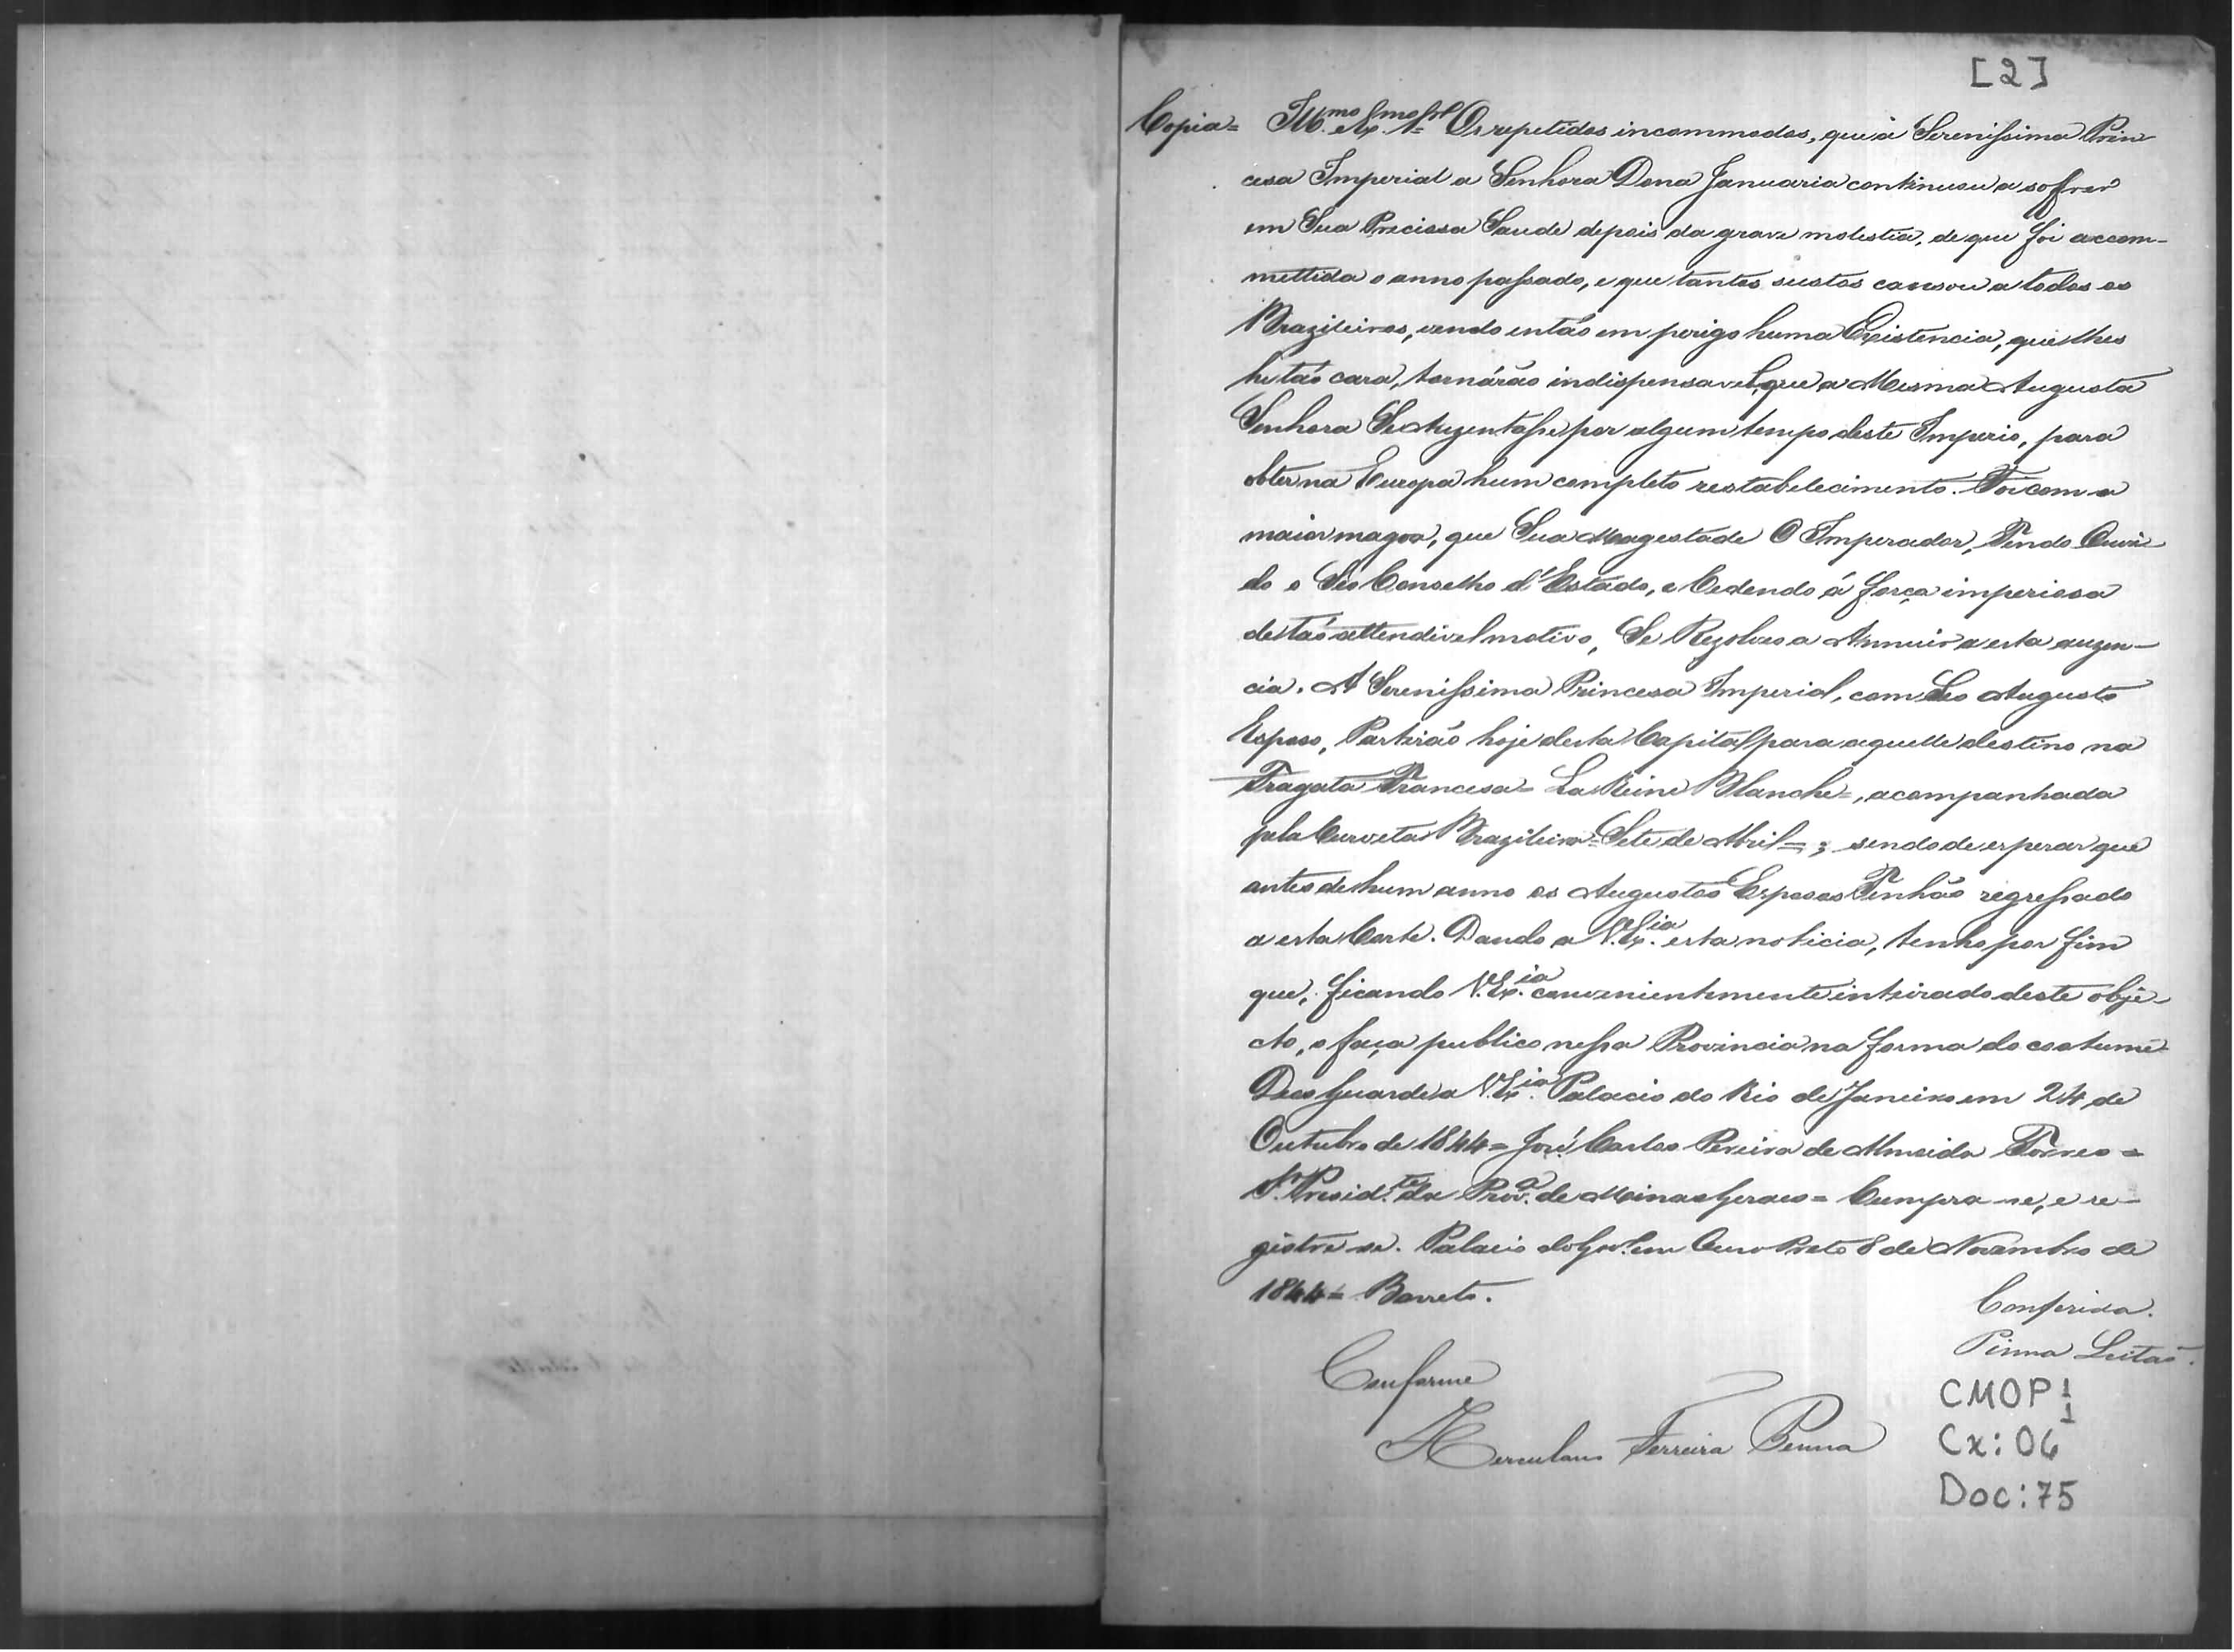 [2]
Copia= Ill.mo e Ex.mo Sr.= Os repetidos incommodos, que a Serenissima Prin
cesa Imperial a Senhora Dona Januaria continuou a soffrer
em Sua Preciosa Saude depois da grave molestia, de que foi accom-
mettida o anno passado, e que tantos sustos causou a todos os
Brazileiros, vendo então em perigo huma Existencia, que lhes
he tão cara, tornárão indispensavel, que a Mesma Augusta
Senhora Se Auzentasse por algum tempo deste Imperio, para
obter na Europa hum completo restabelecimento. Foi com a
maior magoa, que Sua Magestade O Imperador, Tendo Ouvi-
do o Seo Conselho d'Estado, e Cedendo á força imperiosa
de tão attendivel motivo, Se Rezolveo a Annuir a esta auzen-
cia. A Serenissima Princesa Imperial, com Seo Augusto
Esposo, Partirão hoje desta Capital para aquelle destino na
Fragata Francesa = La Reine Blanche =, acompanhada
pela Curveta Brazileira = Sete de Abril =; sendo de esperar que
antes de hum anno os Augustos Esposos Tenhão regressado
a esta Corte. Dando a V. Ex.ia esta noticia, tenho por fim
que, ficando V. Ex.ia convenientemente inteirado deste obje-
cto, o faça publico nessa Provincia na forma do costume
Deos Guarde a V. Ex.ia Palacio do Rio de Janeiro em 24 de
Outubro de 1844 = José Carlos Pereira de Almeida Torres =
Sr. Presid.te da Prov.a de Minas Geraes = Cumpra-se, e re-
gistre se. Palacio do Gov. em Ouro Preto 8 de Novembro de
1844 = Barreto.
Conferida.
Pinna Leitão.
Conforme
Herculano Ferreira Penna
CMOP 1/1
Cx: 06
Doc: 75